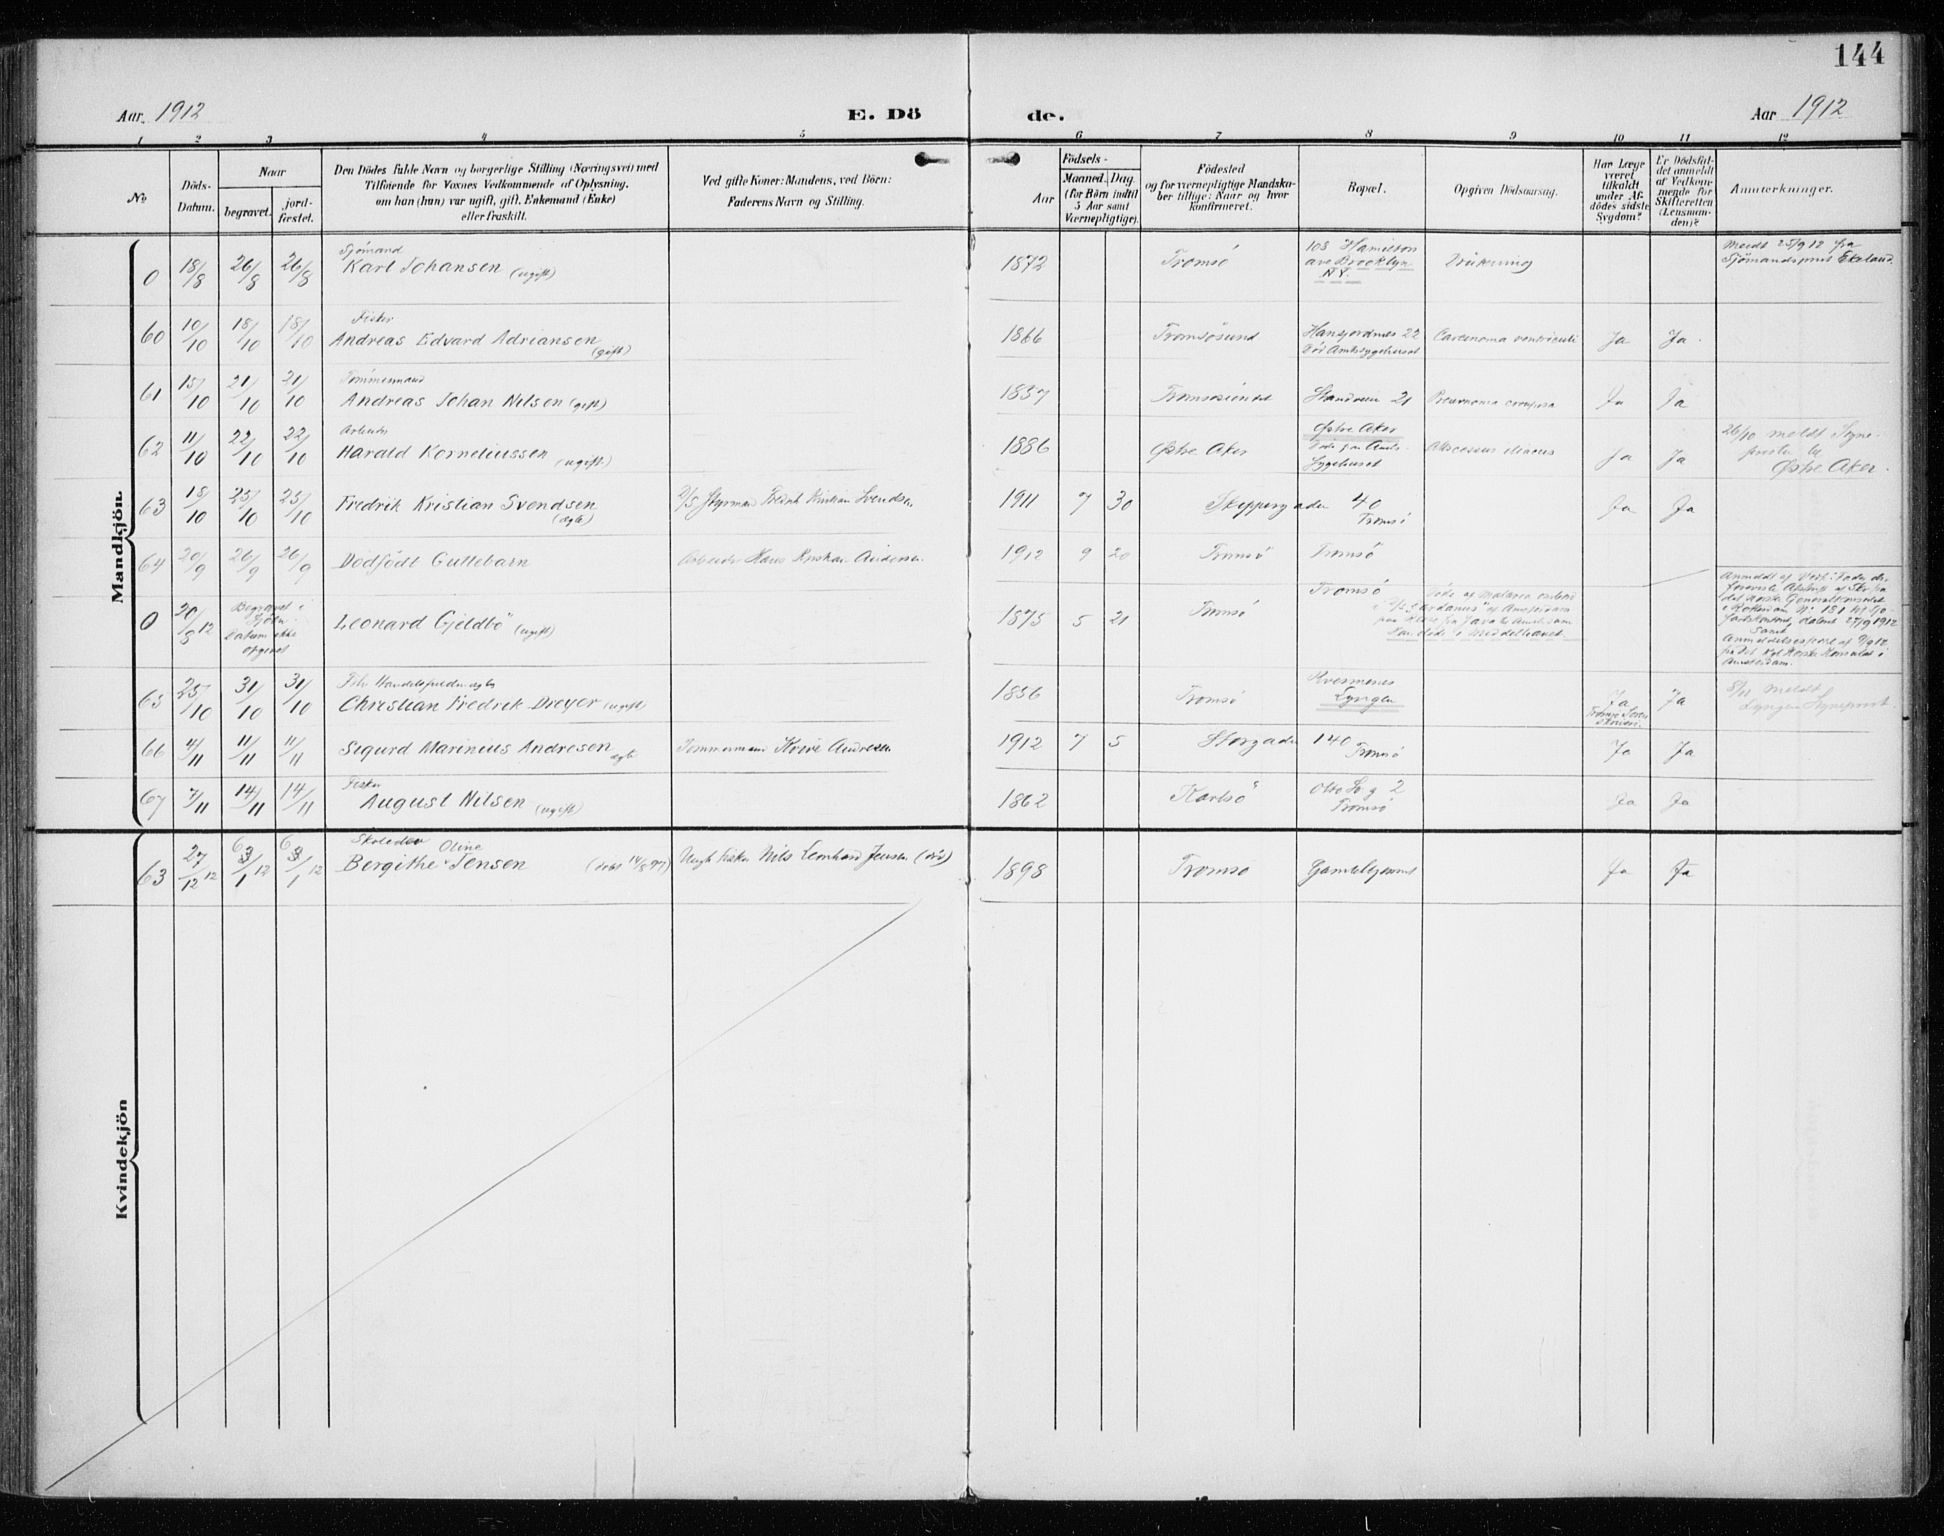 144
Aar 1912
E. Dö
de.
Aar 1912
1 2 3 4 5 6 7 8 9 10 11 12
No
Döds-
Datum.
Naar
begravet.
jord-
fæstet.
Den Dödes fulde Navn og borgerlige Stilling (Næringsvei) med
Tilföiende for Voxnes Vedkommende af Oplysning,
om han (hun) var ugift, gift, Enkemand (Enke)
eller fraskilt.
Ved gifte Koner: Mandens, ved Börn:
Faderens Navn og Stilling.
Födsels-
Aar
Maaned. Dag
(for Börn indtil
5 Aar samt
Værnepligtige).
Födested
og for værnepligtige Mandska-
ber tillige: Naar og hvor
konfirmeret.
Bopæl.
Opgiven Dödsaarsag.
Har Læge
været
tilkaldt
under Af-
dödes sidste
Sygdom?
Er Dödsfal-
det anmeldt
af Vedkom-
mende for
Skifteretten
(Lensman-
den)?
Anmærkninger.
Mandkjön
0 18/8 26/8 26/8 Sjömand
Karl Johansen (ugift) 1872 Tromsö 108 Hamelson
ave Brooklyn
N.Y. Drukning Meldt 25/9 12 fra
Sjömandsprest Ekeland.
60 10/10 18/10 18/10 Fisker
Andreas Edvard Adriansen (gift) 1866 Tromsösund Hansjordnes 22
Död Amtssygehuset Carcinoma ventriculi Ja Ja.
61 15/10 21/10 21/10 Tömmermand
Andreas Johan Nilsen (gift) 1837 Tromsösundet 21 Pneumonia crouposa Ja Ja
62 11/10 22/10 22/10 Arbeider
Harald Korneliussen (ugift) 1886 Østre Aker Østre Aker
Döde paa Amts-
Sygehuset Abscessus iliacus Ja Ja 26/10 meldt Sogne-
presten
Østre Aker.
63 18/10 25/10 25/10 Fredrik Kristian Svendsen (ægte) Styrmand Fredrik Kristian Svendsen 1911 7 30 Skippergaden 40
Tromsö Ja Ja
64 20/9 26/9 26/9 Dödfödt Guttebarn Arbeider Hans Andersen 1912 9 20 Tromsö Tromsö
0 20/8 12 Begravet i
Sjöen.
Datum ikke
opgivet Leonard Gjeldbö (ugift) 1875 5 21 Tromsö Tromsö Döde af Malaria ombord
af Amsterdam
paa Reise fra Java til Amsterdam
Han döde i Middelhavet.
det Norske Generalkonsulat
i Rotterdam No 181
dateret 27/9 1912
samt
fra det kgl Norske Konsulat i
Amsterdam.
65 25/10 31/10 31/10 Fhv Handelsfuldmægtig
Christian Fredrik Dreyer (ugift) 1836 Tromsö Kvesmenes
Lyngen Ja Ja meldt
Lyngen Sogneprest.
66 4/11 11/11 11/11 Sigurd Marinius Andresen ægte Tömmermand Andresen 1912 7 5 Storgaden 140
Tromsö Ja Ja
67 7/11 14/11 14/11 Fisker
August Nilsen (ugift) 1862 Karlsö 2
Tromsö Ja Ja
Kvindekjön
63 27/12 12 Skoleelev
Bergithe Oline Jensen Nils Leonhard Jensen (död) 1898 Tromsö Ja Ja